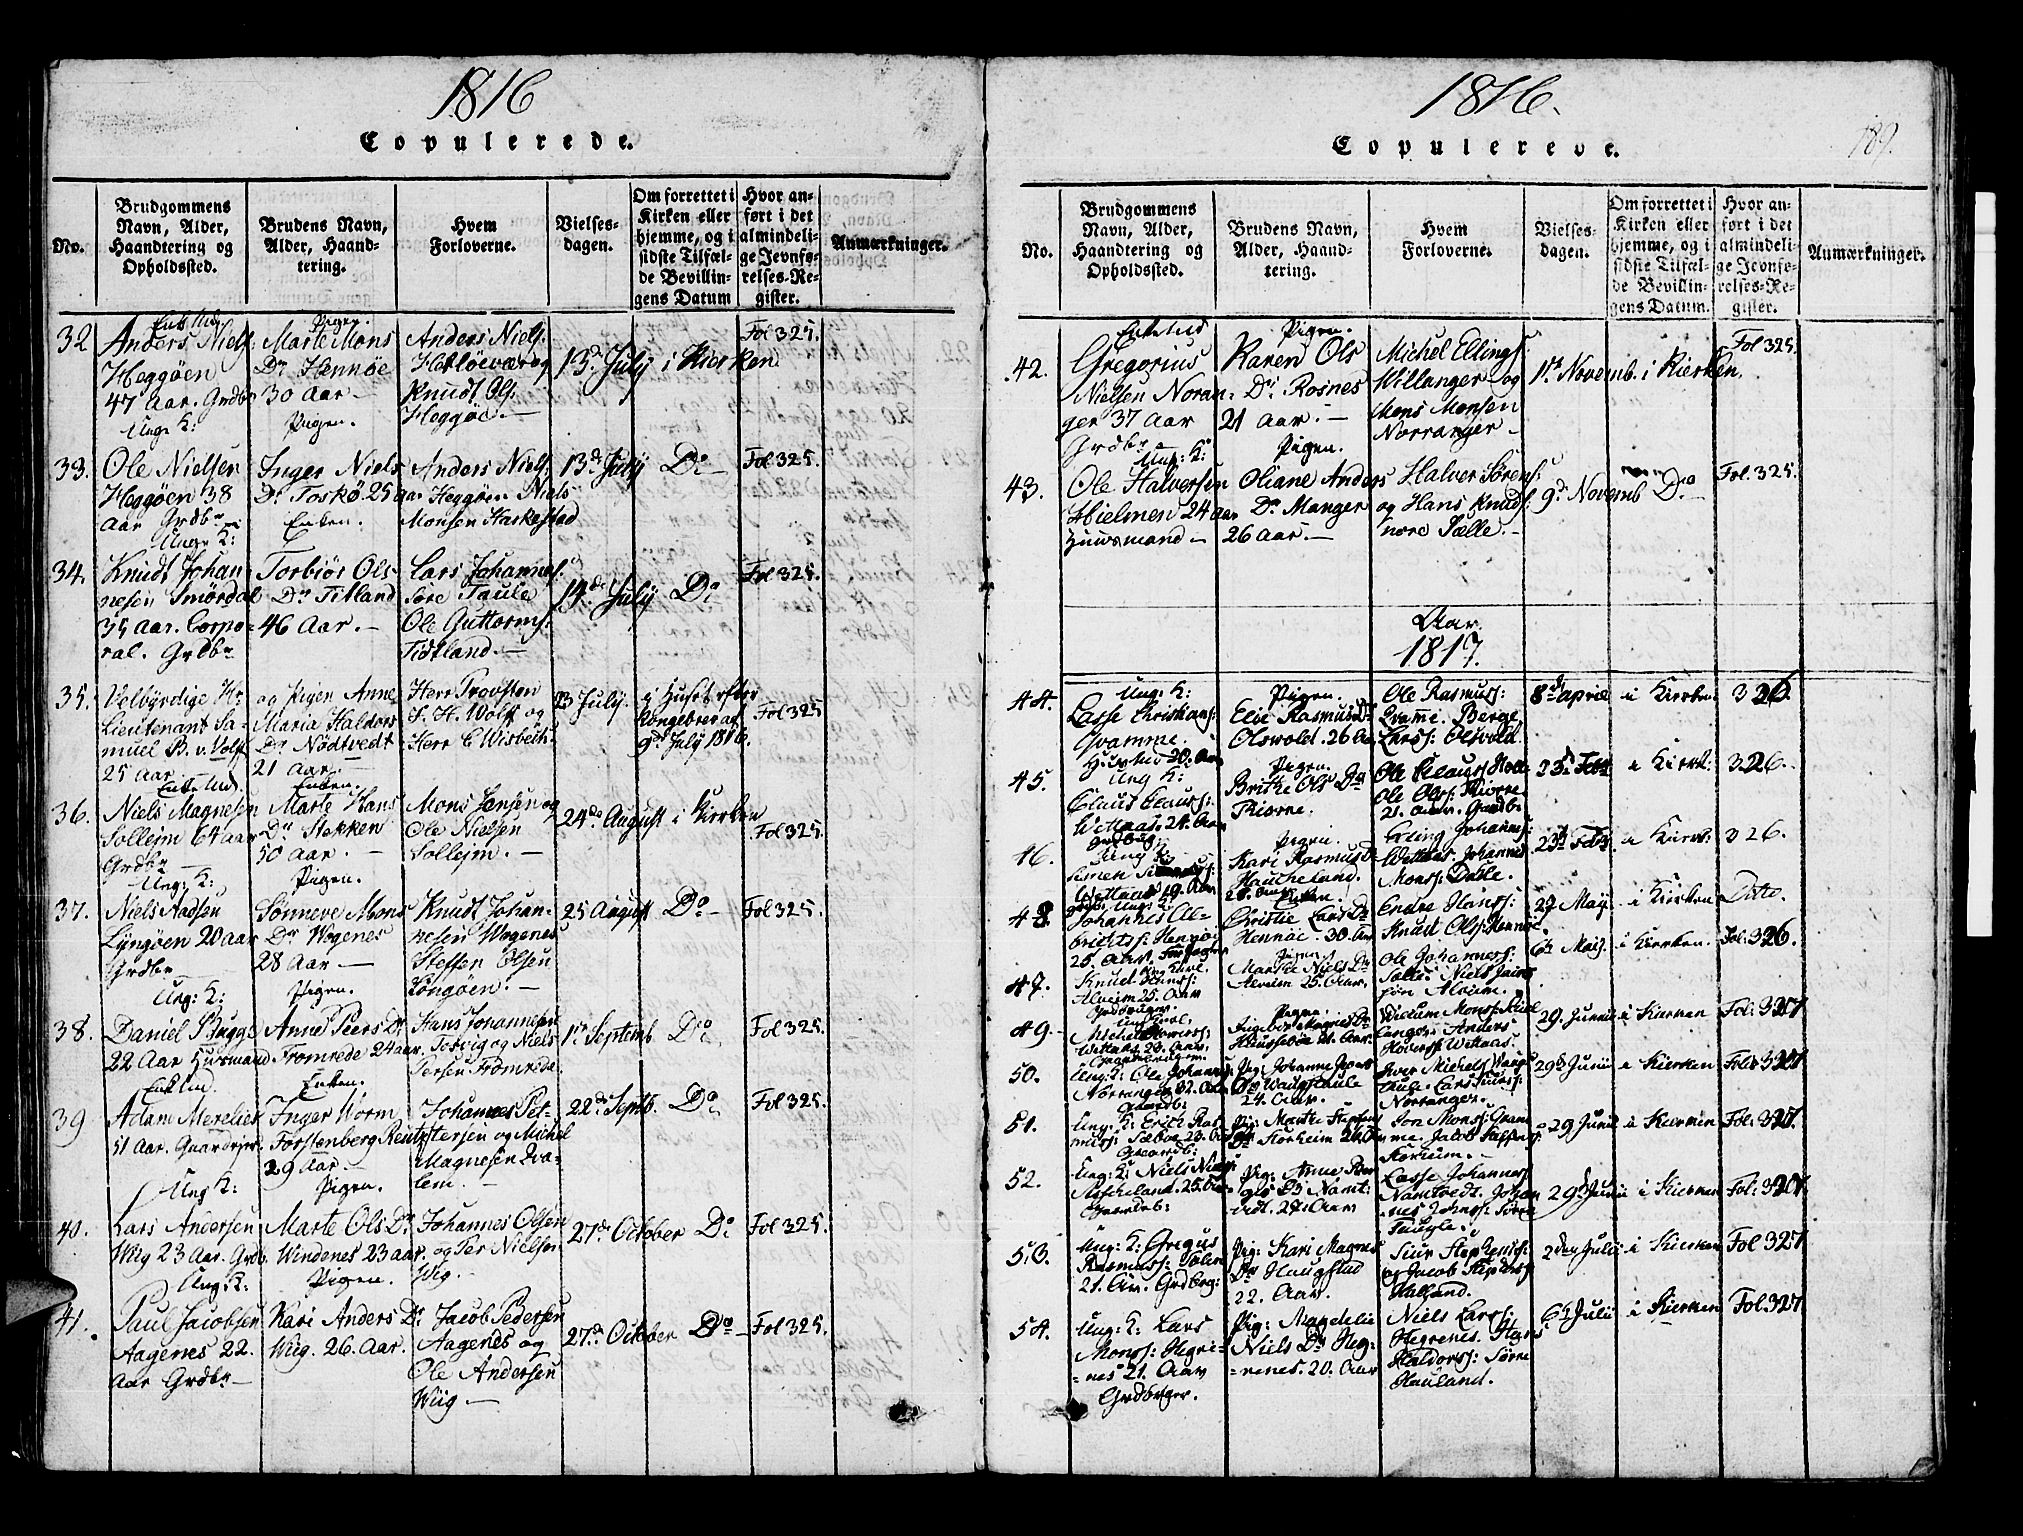 1816
Copulerede.
No.
Brudgommens
Navn, Alder,
Haandtering og
Opholdssted.
Brudens Navn,
Alder, Haand-
tering.
Hvem
Forloverne.
Vielses-
dagen.
Om forrettet i
Kirken eller
hjemme, og i
sidste Tilfæl-
de Bevillin-
gens Datum
Hvor an-
ført i det
almindeli-
ge Jevnfø-
relses-Re-
gister.
Anmærkninger.
32
Enke Md.
Anders Niels.
Heggöen
47 Aar. Grdbr
Pigen.
Marte Mons
Dr Hennöe
30 Aar —
Anders Niels.
Herlöevær og
Knudt Ols.
Heggöe. —
13de July i Kierken
Fol 325.
33.
Ung: K:
Ole Nielsen
Heggöen 38
Aar Grdbr
Pigen.
Inger Niels
Dr Toskö 25 aar
Anders Niels.
Heggöen Niels
Monsen Haskestad
13de July
Do —
Fol 325.
34.
Ung: K:
Knudt Johan
nesen Smördal
35 Aar. Corpo=
ral. Grdbr
Enken.
Torbiör Ols
Dr Titland
46 Aar. —
Lars Johannes.
Söre Taule
Ole Guttorms.
Tidtland. —
14de July
Do
Fol 325.
35.
Velbyrdige Hr
Lieutenant Sa-
muel B. v. Wolff
25 Aar
og Pigen Anne
Maria Haldors
Dr Nödtvedt
21 Aar. —
Herr Provsten
S. H. Wolff og
Herr C Wisbech
23 July.
i Huset efter
Kongebrev af
9de July 1816.
Fol 325
36.
Enke Md.
Niels Magnesen
Solleim 64 aar
Grdbr —
Enken.
Marte Hans
Dr Stekken
50 Aar. —
Mons Jensen og
Ole Nielsen
Solleim. —
24de August i Kierken
Fol 325.
37.
Ung: K:
Niels Aadsen
Lyngöen 20 aar
Grdbr
Pigen.
Sönneve Mons
Dr Wogenes
28 Aar —
Knudt Johan-
nesen Wogenes
Steffen Olsen
Longöen. —
25 August
Do —
Fol 325.
38.
Ung: K:
Daniel Bugge
22 Aar Huusmand
Pigen.
Anne Peers Dr
Fromrede 24 aar.
Hans Johannesen
Totvig og Niels
Persen Fromrede.
1ste Septemb.
Do
Fol 325.
39
Enke Md.
Adam Merelies
51 Aar.
Enken.
Inger Worm
Forstenberg Reutz
29 Aar. —
Johannes Pet-
tersen og Michel
Magnesen Qva-
lem. —
22de Septb.
Do
Fol 325.
40.
Ung K:
Lars Andersen
Wiig 23 Aar. Grdb.
Pigen.
Marte Ols Dr
Windenes 23 aar.
Johannes Olsen
og Per Nielsen
Wig. —
27de October
Do
Fol 325.
41.
Ung: K:
Paul Jacobsen
Aagenes 22.
Aar Grdbr —
Pigen.
Kari Anders Dr
Wiig. 26. Aar.
Jacob Pedersen
Aagenes og
Ole Andersen
Wiig —
27de October
Do —
Fol 325.
1816.
Copulerede.
189.
No.
Brudgommens
Navn, Alder,
Haandtering og
Opholdssted.
Brudens Navn,
Alder, Haand-
tering.
Hvem
Forloverne.
Vielses-
dagen.
Om forrettet i
Kirken eller
hjemme, og i
sidste Tilfæl-
de Bevillin-
gens Datum.
Hvor an-
ført i det
almindeli-
ge Jevnfø-
relses-Re-
gister.
Anmærkninger.
42.
Enke Md
Gregorius
Nielsen Noran=
ger 37 Aar
Grdbr —
Pigen.
Karen Ols
Dr Rosnes
21 aar. —
Michel Ellings.
Willanger og
Mons Monsen
Norranger —
1ste Novemb. i Kierken.
Fol 325.
43.
Ung: K:
Ole Halversen
Hielmen 24 Aar
Huusmand —
Pigen.
Oliane Anders
Dr Manger
26 Aar. —
Halver Sörens:
og Hans Knuds:
nore Sælle. —
9de Novemb
Do —
Fol. 325.
Aar.
1817.
44.
Ung: K:
Lasse Christians:
Qvamme.
Pigen.
Elie Rasmus Dr
Olswold. 26 Aar
Ole Rasmus:
Qvamme. Berge
Larss: Olsvold.
8de april
i Kierken:
326.
45.
Ung K:
Claus Clauss:
Wettaas. 24. Aar
Pigen.
Brithe Ols Dr
Kiorne.
Ole Clauss:
Ole Olss: Kiorne
23de Febr
i Kierk:
326.
46.
Ung K:
Simen
Wettaas 19. Aar
Pigen.
Kari Rasmus Dr
Haucheland.
Erling Johanns:
Wettaas. Johannes
Monss: Dalle.
23de Febr
i Kierk:
326.
48.
Ung: K:
Johannes Al-
brichts: Hennöe
25. Aar.
Enken.
Christie Lars Dr
Hennöe. 30. Aar
Endre Hanss:
Knud Olss: Hennöe.
27 May
i Kierken
Ditto.
47.
Knud Hanss:
Alveim 25. Aar
Pigen
Marthe Niels Dr
Alveim 25. Aar.
Ole Johannes:
6te Maj.
i Kierken.
Fol: 326.
49.
Michel
Wettaas 23. Aar.
Pigen.
Ingebor Magnes Dr
29. Junii
i Kierken
Fol: 327
50.
Ung: K: Ole Johanns:
Norranger 32. Aar
Pig: Johanne
24. Aar.
Norranger.
29de Junii
i Kierken
Fol: 327
51.
Ung: K: Erich Ras
muss: Sæboe 23. Aar
Pig: Marthe Stephens
Dr Storheim
Jon Monss: Qvam
me. Jacob Steffens:
Storheim. —
29 Junii
i Kierken
Fol: 327.
52.
Ung: K: Niels
Ascheland. 25. Aar
Pig: Anne Peer
27. Aar
Lasse Johannes
Namtvedt. Johan
nes Johnss: Söre
Taugle.
29de Junii
i Kierken
Fol: 327.
53.
Ung: K: Gregus
Rasmuss:
21. Aar. Grdbrg:
Pig: Kari Magnes
Dr Haugstad
22. Aar.
Siur Stephenss:
og Jacob Stephens:
Halland.
2den Julii
i Kierken
Fol 327
54.
Ung: K: Lars
Monss: Hegri-
=nes 21. Aar
Grdbruger.
Pig: Magdelie
Niels Dr Heg-
=renes. 20. Aar
Niels Larss:
Hegrenes. Hans
Haldorss: Sörre
Hauland.
6te Julii
i Kierken
Fol. 327